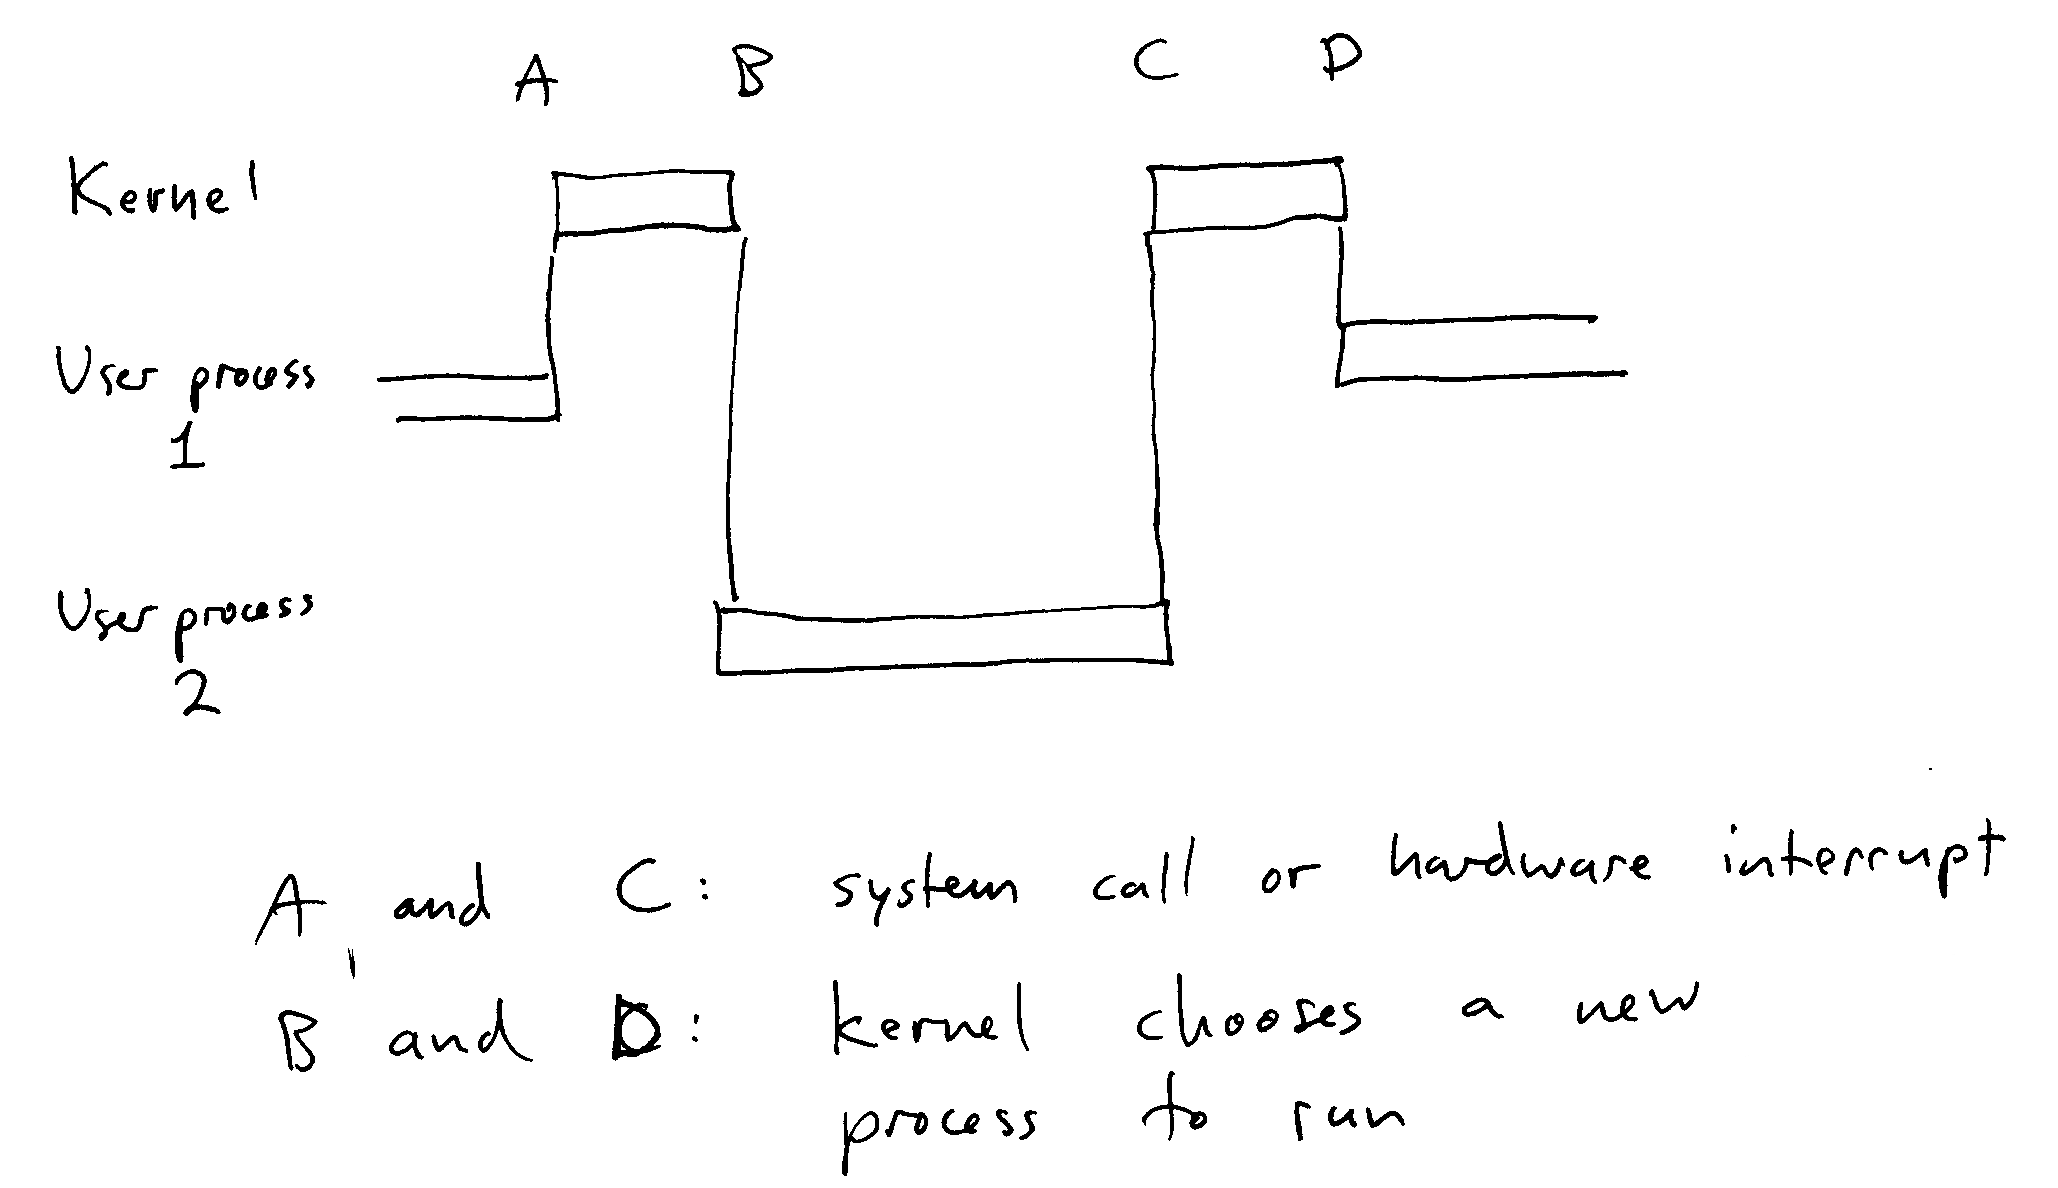 A B C D
Kernel
User process
1
User process
2
A and C: system call or hardware interrupt
B and D: kernel chooses a new
process to run